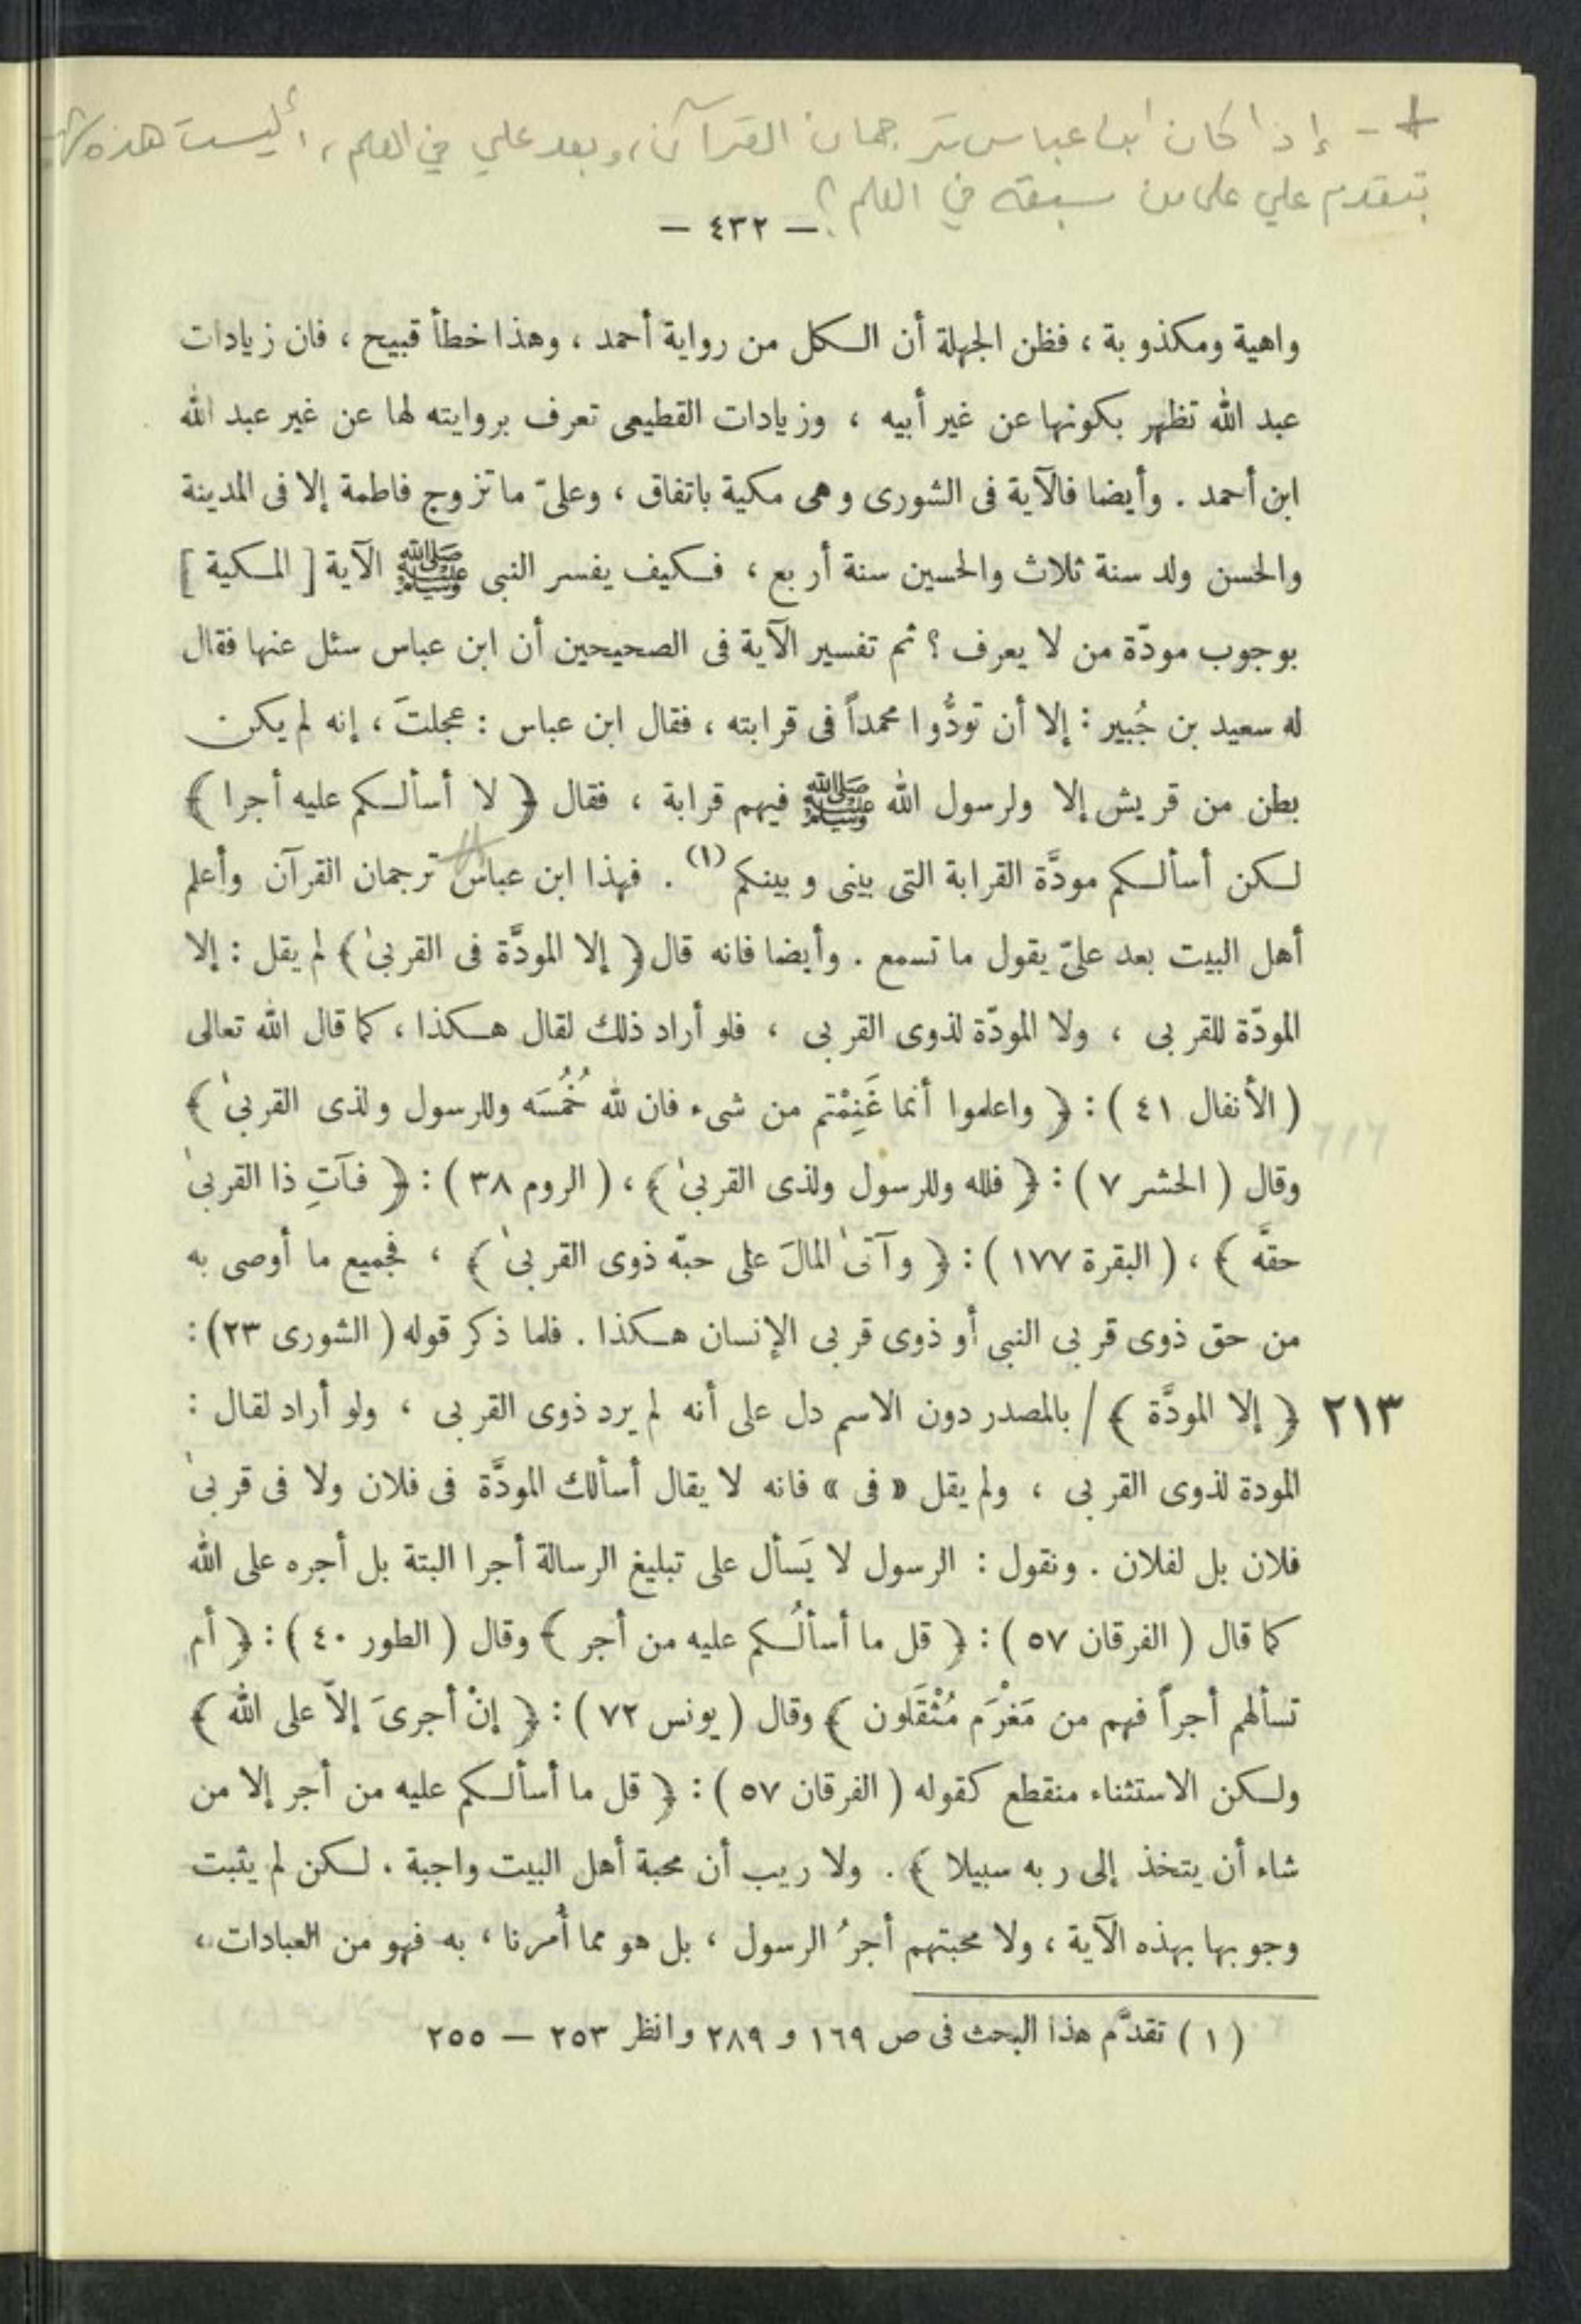 + - إذا كان ابن عباس ترجمان القرآن، وبعد علي في العلم، أليست هذه
بتقدم علي على من سبقه في العلم؟
— ٤٣٢ —
واهية ومكذوبة ، فظن الجهلة أن الكل من رواية أحمد ، وهذا خطأ قبيح ، فان زيادات
عبد الله تظهر بكونها عن غير أبيه ، وزيادات القطيعى تعرف بروايته لها عن غير عبد الله
ابن أحمد . وأيضا فالآية فى الشورى وهى مكية باتفاق ، وعلىّ ما تزوج فاطمة إلا فى المدينة
والحسن ولد سنة ثلاث والحسين سنة أربع ، فكيف يفسر النبى ﷺ الآية [ المكية ]
بوجوب مودّة من لا يعرف ؟ ثم تفسير الآية فى الصحيحين أن ابن عباس سئل عنها فقال
له سعيد بن جُبير : إلا أن تودُّوا محمداً فى قرابته ، فقال ابن عباس : عجلتَ ، إنه لم يكن
بطن من قريش إلا ولرسول الله ﷺ فيهم قرابة ، فقال ﴿ لا أسألكم عليه أجرا ﴾
لكن أسألكم مودَّة القرابة التى بينى وبينكم (١) . فهذا ابن عباس ترجمان القرآن وأعلم
أهل البيت بعد علىّ يقول ما تسمع . وأيضا فانه قال ﴿ إلا المودَّة فى القربىٰ ﴾ لم يقل : إلا
المودّة للقربى ، ولا المودّة لذوى القربى ، فلو أراد ذلك لقال هكذا ، كما قال الله تعالى
( الأنفال ٤١ ) : ﴿ واعلموا أنما غَنِمْتم من شىء فان لله خُمُسَه وللرسول ولذى القربىٰ ﴾
وقال ( الحشر ٧ ) : ﴿ فلله وللرسول ولذى القربىٰ ﴾ ، ( الروم ٣٨ ) : ﴿ فآتِ ذا القربىٰ
حقَّه ﴾ ، ( البقرة ١٧٧ ) : ﴿ وآتىٰ المالَ على حبّه ذوى القربىٰ ﴾ ، فجميع ما أوصى به
من حق ذوى قربى النبى أو ذوى قربى الإنسان هكذا . فلما ذكر قوله ( الشورى ٢٣ ) :
٢١٣ ﴿ إلا المودَّة ﴾ / بالمصدر دون الاسم دل على أنه لم يرد ذوى القربى ، ولو أراد لقال :
المودة لذوى القربى ، ولم يقل « فى » فانه لا يقال أسألك المودَّة فى فلان ولا فى قربىٰ
فلان بل لفلان . ونقول : الرسول لا يَسأل على تبليغ الرسالة أجرا البتة بل أجره على الله
كما قال ( الفرقان ٥٧ ) : ﴿ قل ما أسألُكم عليه من أجر ﴾ وقال ( الطور ٤٠ ) : ﴿ أم
تسألهم أجراً فهم من مَغْرَم مُثْقَلون ﴾ وقال ( يونس ٧٢ ) : ﴿ إنْ أجرىَ إلاّ على الله ﴾
ولكن الاستثناء منقطع كقوله ( الفرقان ٥٧ ) : ﴿ قل ما أسألكم عليه من أجر إلا من
شاء أن يتخذ إلى ربه سبيلا ﴾ . ولا ريب أن محبة أهل البيت واجبة . لكن لم يثبت
وجوبها بهذه الآية ، ولا محبتهم أجرُ الرسول ، بل هو مما أُمرنا ، به فهو من العبادات ،
( ١ ) تقدَّم هذا البحث فى ص ١٦٩ و ٢٨٩ وانظر ٢٥٣ — ٢٥٥